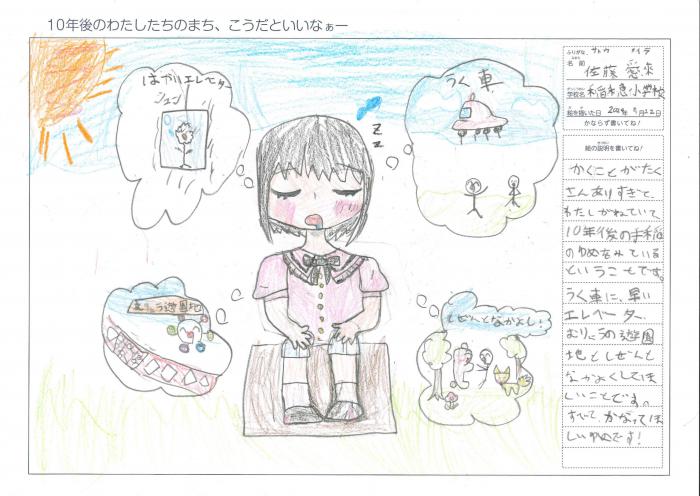 10年後のわたしたちのまち、こうだといいなぁー
はやいエレベーター
シュン
うく車
zzz
むりょう遊園地
しぜんとなかよし!
ふりがな
名前
佐藤
学校名
小学校
絵を描いた日
かならず書いてね!
絵の説明を書いてね!
かくことがたく
さんありすぎて、
わたしがねていて、
10年後の手稲
のゆめをみている
ということです。
うく車に、早い
エレベーター、
むりょうの遊園
地としぜんと
なかよくしてほ
しいことです。
すべて かなってほ
しいゆめです!